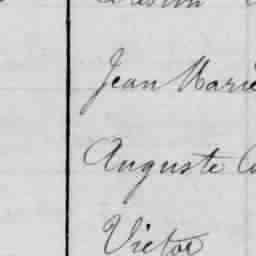 Jean Marie
Auguste
Victor